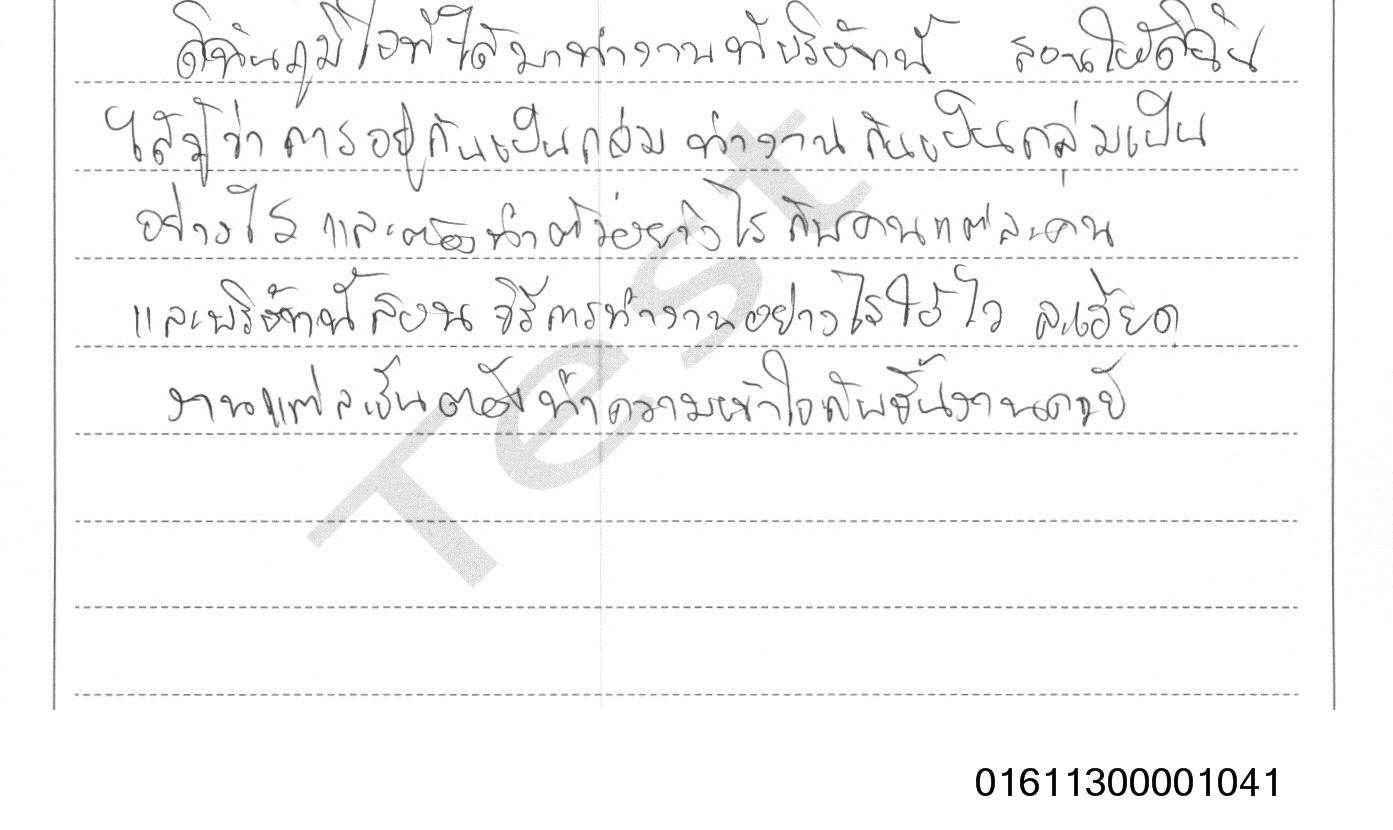 ดิฉันภูมิใจที่ได้มาทำงานที่บริษัทนี้ สอนให้ดิฉัน
ได้รู้ว่า การอยู่กันเป็นกลุ่ม ทำงานกันเป็นกลุ่มเป็น
อย่างไร และต้องทำตัวอย่างไร กับคนแต่ละคน
และบริษัทนี้สอน วิธีการทำงานอย่างไรให้ไว ละเอียด
งานแต่ละชิ้นต้องทำความเข้าใจกับชิ้นงาน
Test
01611300001041